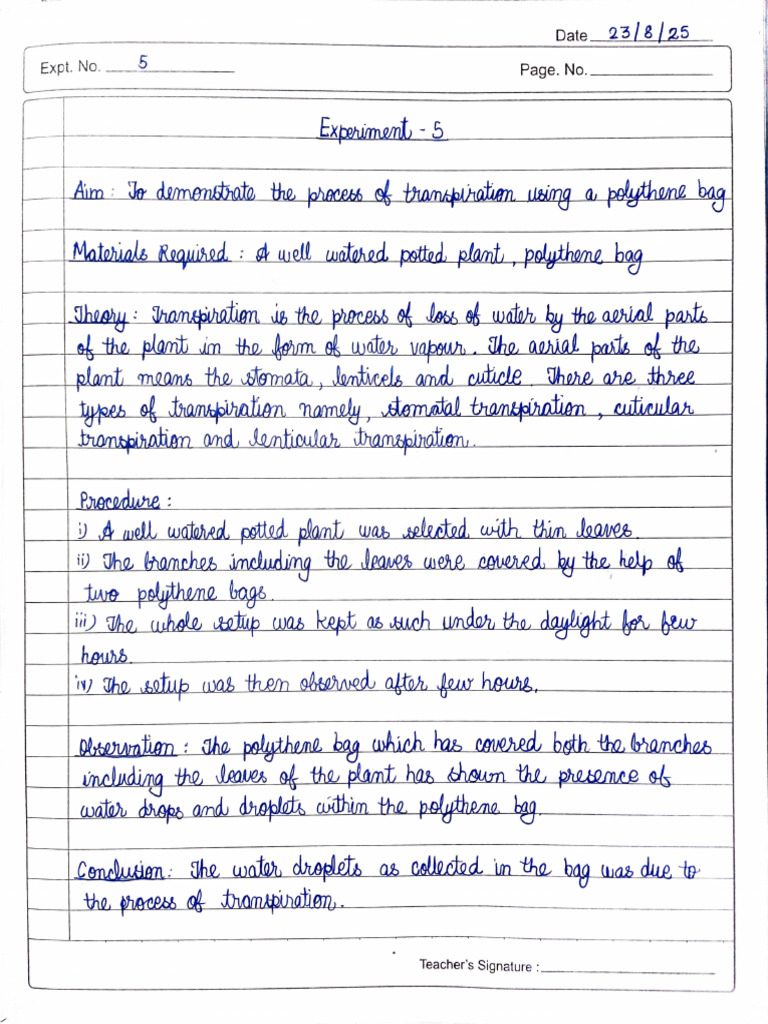 Date 23/8/25
Expt. No. 5
Page. No.
Experiment - 5
Aim : To demonstrate the process of transpiration using a polythene bag
Materials Required : A well watered potted plant, polythene bag
Theory : Transpiration is the process of loss of water by the aerial parts
of the plant in the form of water vapour. The aerial parts of the
plant means the stomata, lenticels and cuticle. There are three
types of transpiration namely, stomatal transpiration, cuticular
transpiration and lenticular transpiration.
Procedure :
i) A well watered potted plant was selected with thin leaves.
ii) The branches including the leaves were covered by the help of
two polythene bags.
iii) The whole setup was kept as such under the daylight for few
hours.
iv) The setup was then observed after few hours.
Observation : The polythene bag which has covered both the branches
including the leaves of the plant has shown the presence of
water drops and droplets within the polythene bag.
Conclusion : The water droplets as collected in the bag was due to
the process of transpiration.
Teacher's Signature :